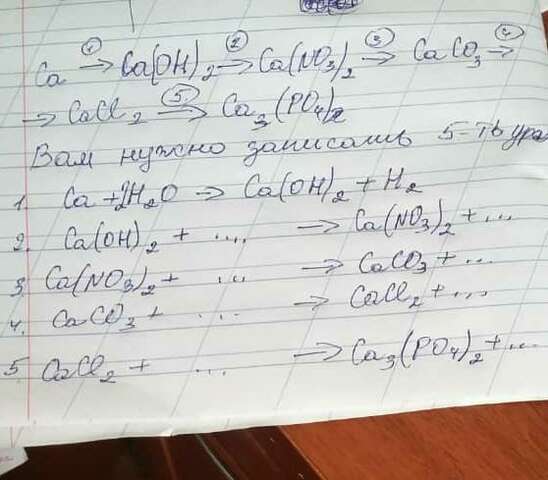 Ca ①→ Ca(OH)2 ②→ Ca(NO3)2 ③→ CaCO3 ④→
→ CaCl2 ⑤→ Ca3(PO4)2
Вам нужно записать 5-ть ура
1. Ca + 2H2O → Ca(OH)2 + H2
2. Ca(OH)2 + .... → Ca(NO3)2 + ...
3. Ca(NO3)2 + ... → CaCO3 + ...
4. CaCO3 + ... → CaCl2 + ...
5. CaCl2 + ... → Ca3(PO4)2 + ...